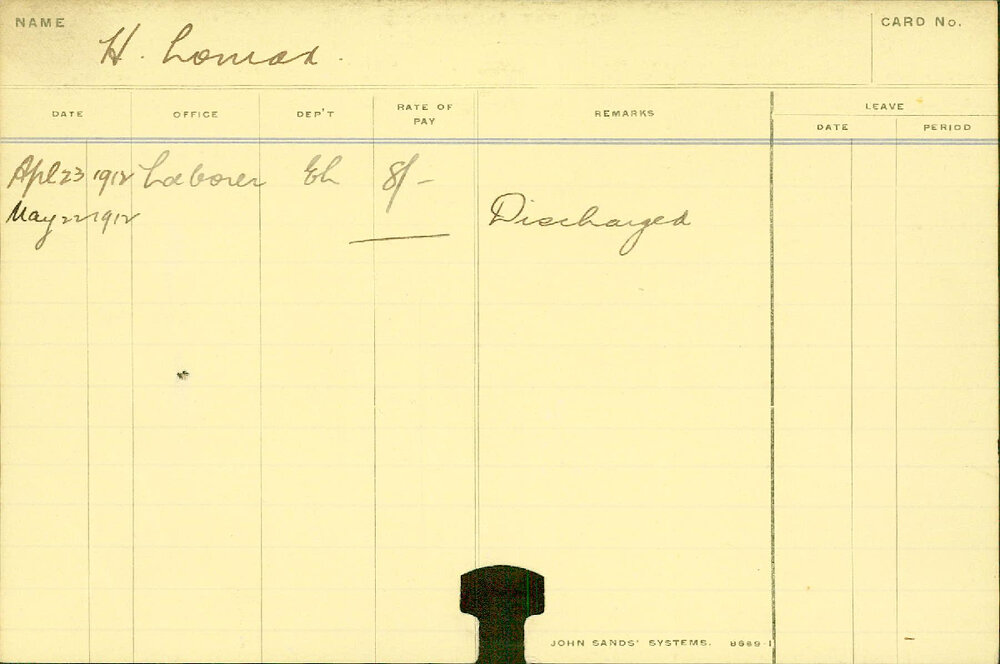 NAME
H. Lomas.
CARD No.
DATE OFFICE DEP'T RATE OF PAY REMARKS LEAVE
DATE PERIOD
Apl 23 1912 Laborer Eh 8/-
May 22 1912 Discharged
JOHN SANDS' SYSTEMS. 8689-1